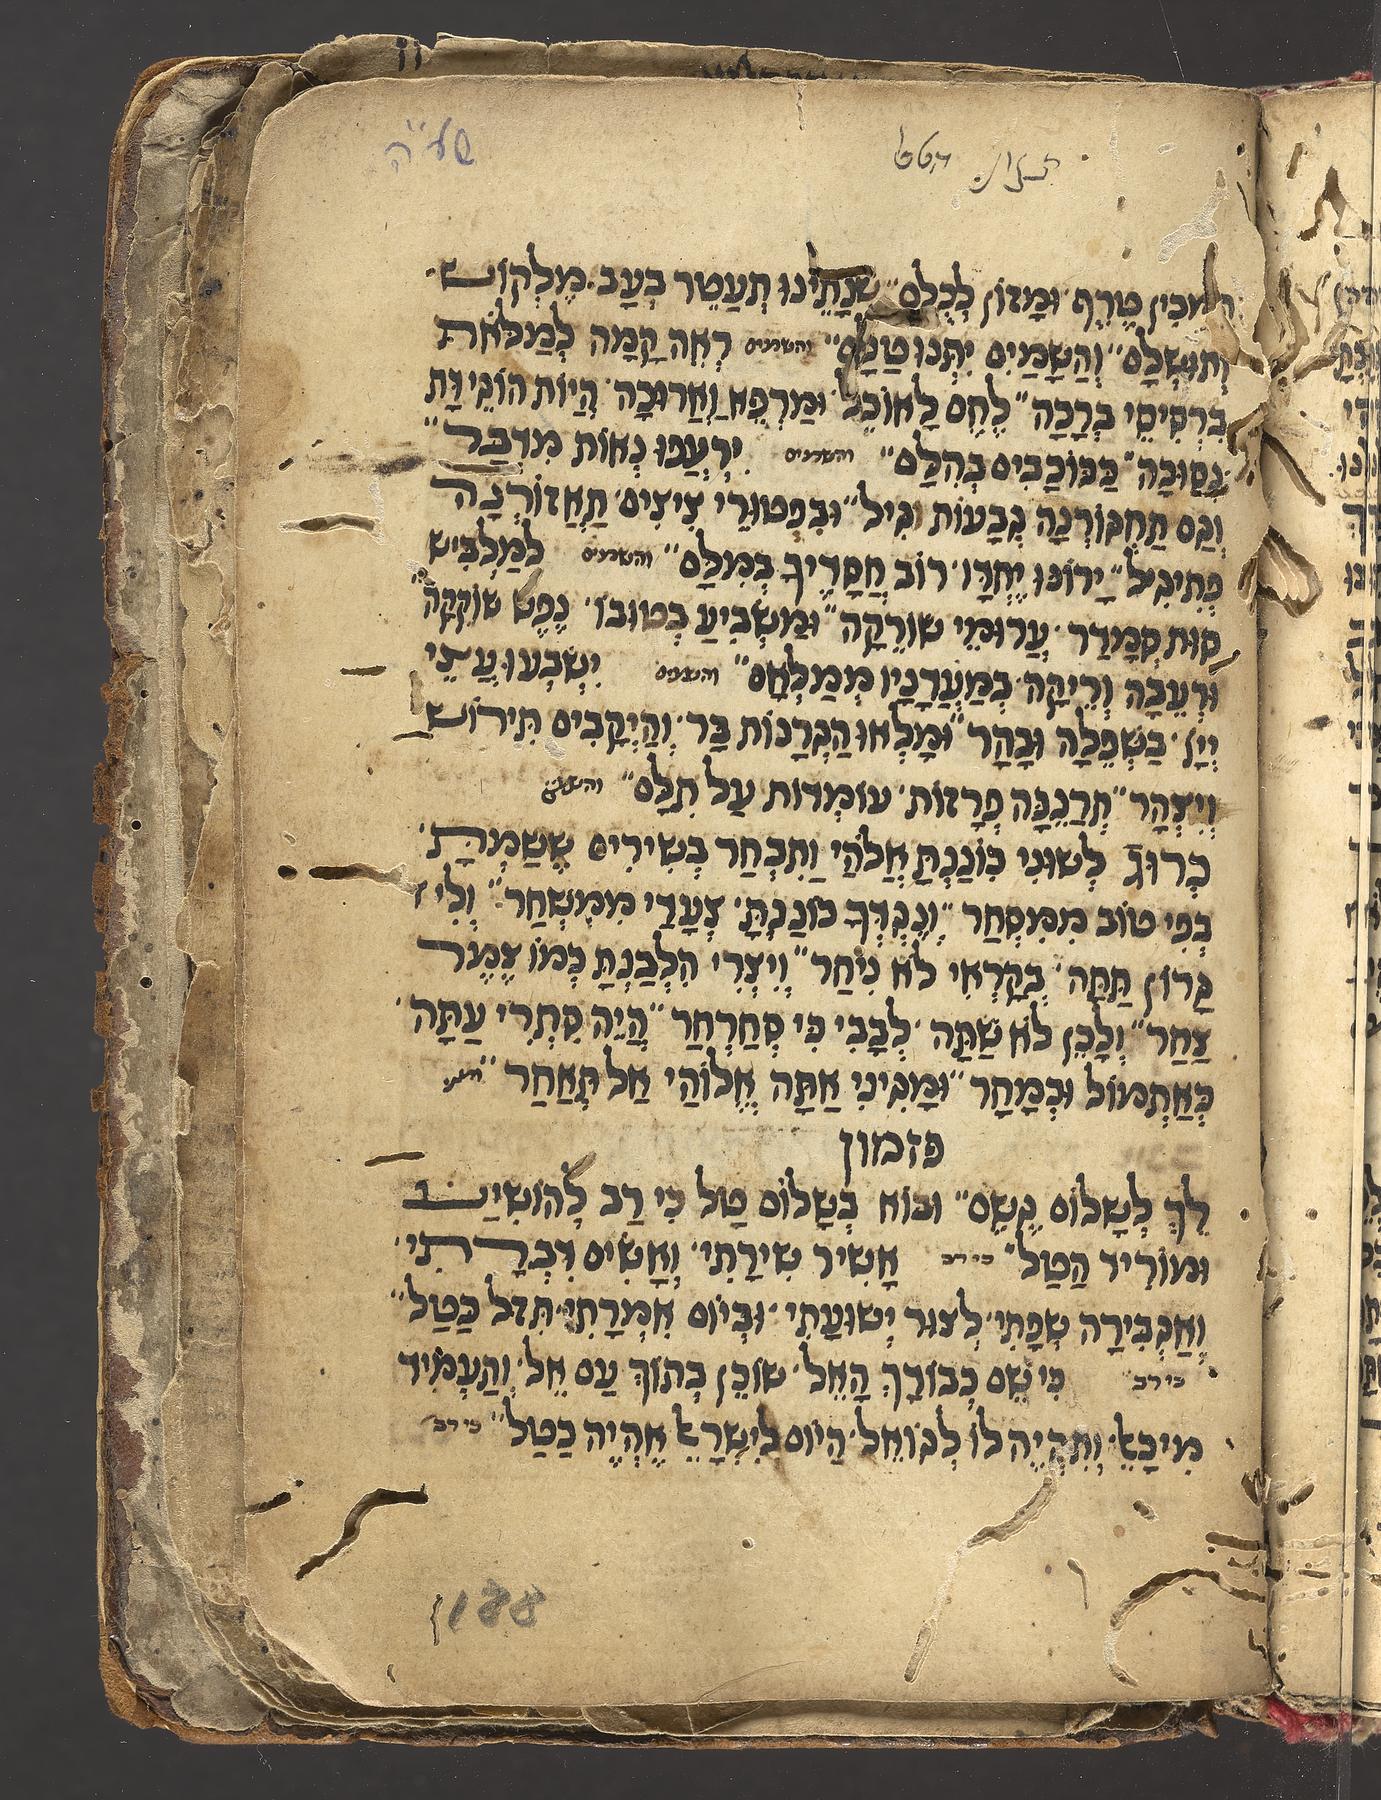 תקון הטל
שע״ה
המכין טֶרֶף וּמָזוֹן לְכֻלָּם״ שְׁנָתֵינוּ תְעַטֵּר בְּעָב מַלְקוֹשׁ
וְהַשָּׁמַיִם יִתְּנוּ טַלָּם״ והשמים רְאֵה קָמָה לְמַלֹּאת
בִּרְסִיסֵי בְרָכָה״ לֶחֶם לָאוֹכֵל וּמַרְפֵּא וַאֲרוּכָה הֱיוֹת
כַּכּוֹכָבִים בְּהִלָּם״ והשמים יִרְעֲפוּ נְאוֹת מִדְבָּר״
וְגַם תַּחְגּוֹרְנָה גְבָעוֹת וגִיל״ וּבִפְטוּרֵי צִיצִים תֶּאֱזוֹרְנָה
פְּתִיגִיל״ יָרוֹנּוּ יֶחְדָּו רוֹב חֲסָדֶיךָ בְּמִלָּם״ והשמים לְמַלְבִּישׁ
סוּת סְמָדַר עֲרוּמֵי שׂוֹרֵקָה״ וּמַשְׂבִּיעַ בְּטוּבוֹ נֶפֶשׁ שׁוֹקֵקָה
וּרְעֵבָה וְרֵיקָה בְּמַעֲדַנָּיו מְמַלְּאָם״ והשמים יִשְׂבְּעוּ עֲתֵי
יָיִן בַּשְּׁפֵלָה וּבָהָר״ וּמָלְאוּ הַגְּרָנוֹת בָּר וְהַיְקָבִים תִּירוֹשׁ
וְיִצְהָר״ תְּרַנֵּנָּה פְרָזוֹת עוֹמְדוֹת עַל תִּלָּם״ והשמים
כְרוּב לְשׁוֹנִי כּוֹנַנְתָּ אֱלֹהַי וַתִּבְחַר בְּשִׁירִים שֶׁשַּׂמְתָּ
בְּפִי טוֹב מִמִּסְחַר״ וְנֶגְדְּךָ כוֹנַנְתָּ צְעָדַי מִמִּשְׁחַר״ וְלִי
גָרוֹן תַּתָּה בְּקָרְאִי לֹא נִיחַר״ וְיִצְרִי הִלְבַּנְתָּ כְּמוֹ צֶמֶר
צַחַר״ וְלָכֵן לֹא שַׁתָּה לְבָבִי כִּי סְחַרְחַר״ הֱיֵה סִתְרִי עַתָּה
כְּאֶתְמוֹל וּכְמָחָר״ וּמָגִינִּי אַתָּה אֱלוֹהַי אַל תְּאַחַר״
פזמון
לֵךְ לְשָׁלוֹם גֶּשֶׁם״ וּבוֹא בְשָׁלוֹם טַל כִּי רַב לְהוֹשִׁיעַ
וּמוֹרִיד הַטַּל״ כי רב אָשִׁיר שִׁירָתִי וְאָשִׂים דִּבְרָתִי
וְאַגְבִּירָה שְׂפָתִי לְצוּר יְשׁוּעָתִי וּבְיוֹם אִמְרָתִי תִּזַּל כַּטַּל״
כי רב כִּי שֵׁם כְּבוֹדָךְ הָאֵל שׁוֹכֵן בְּתוֹךְ עַם אֵל וְתַעֲמִיד
מִיכָאֵל וְתִהְיֶה לוֹ לְגוֹאֵל הַיּוֹם לְיִשְׂרָאֵל אֶהְיֶה כַטַּל״ כי רב
188